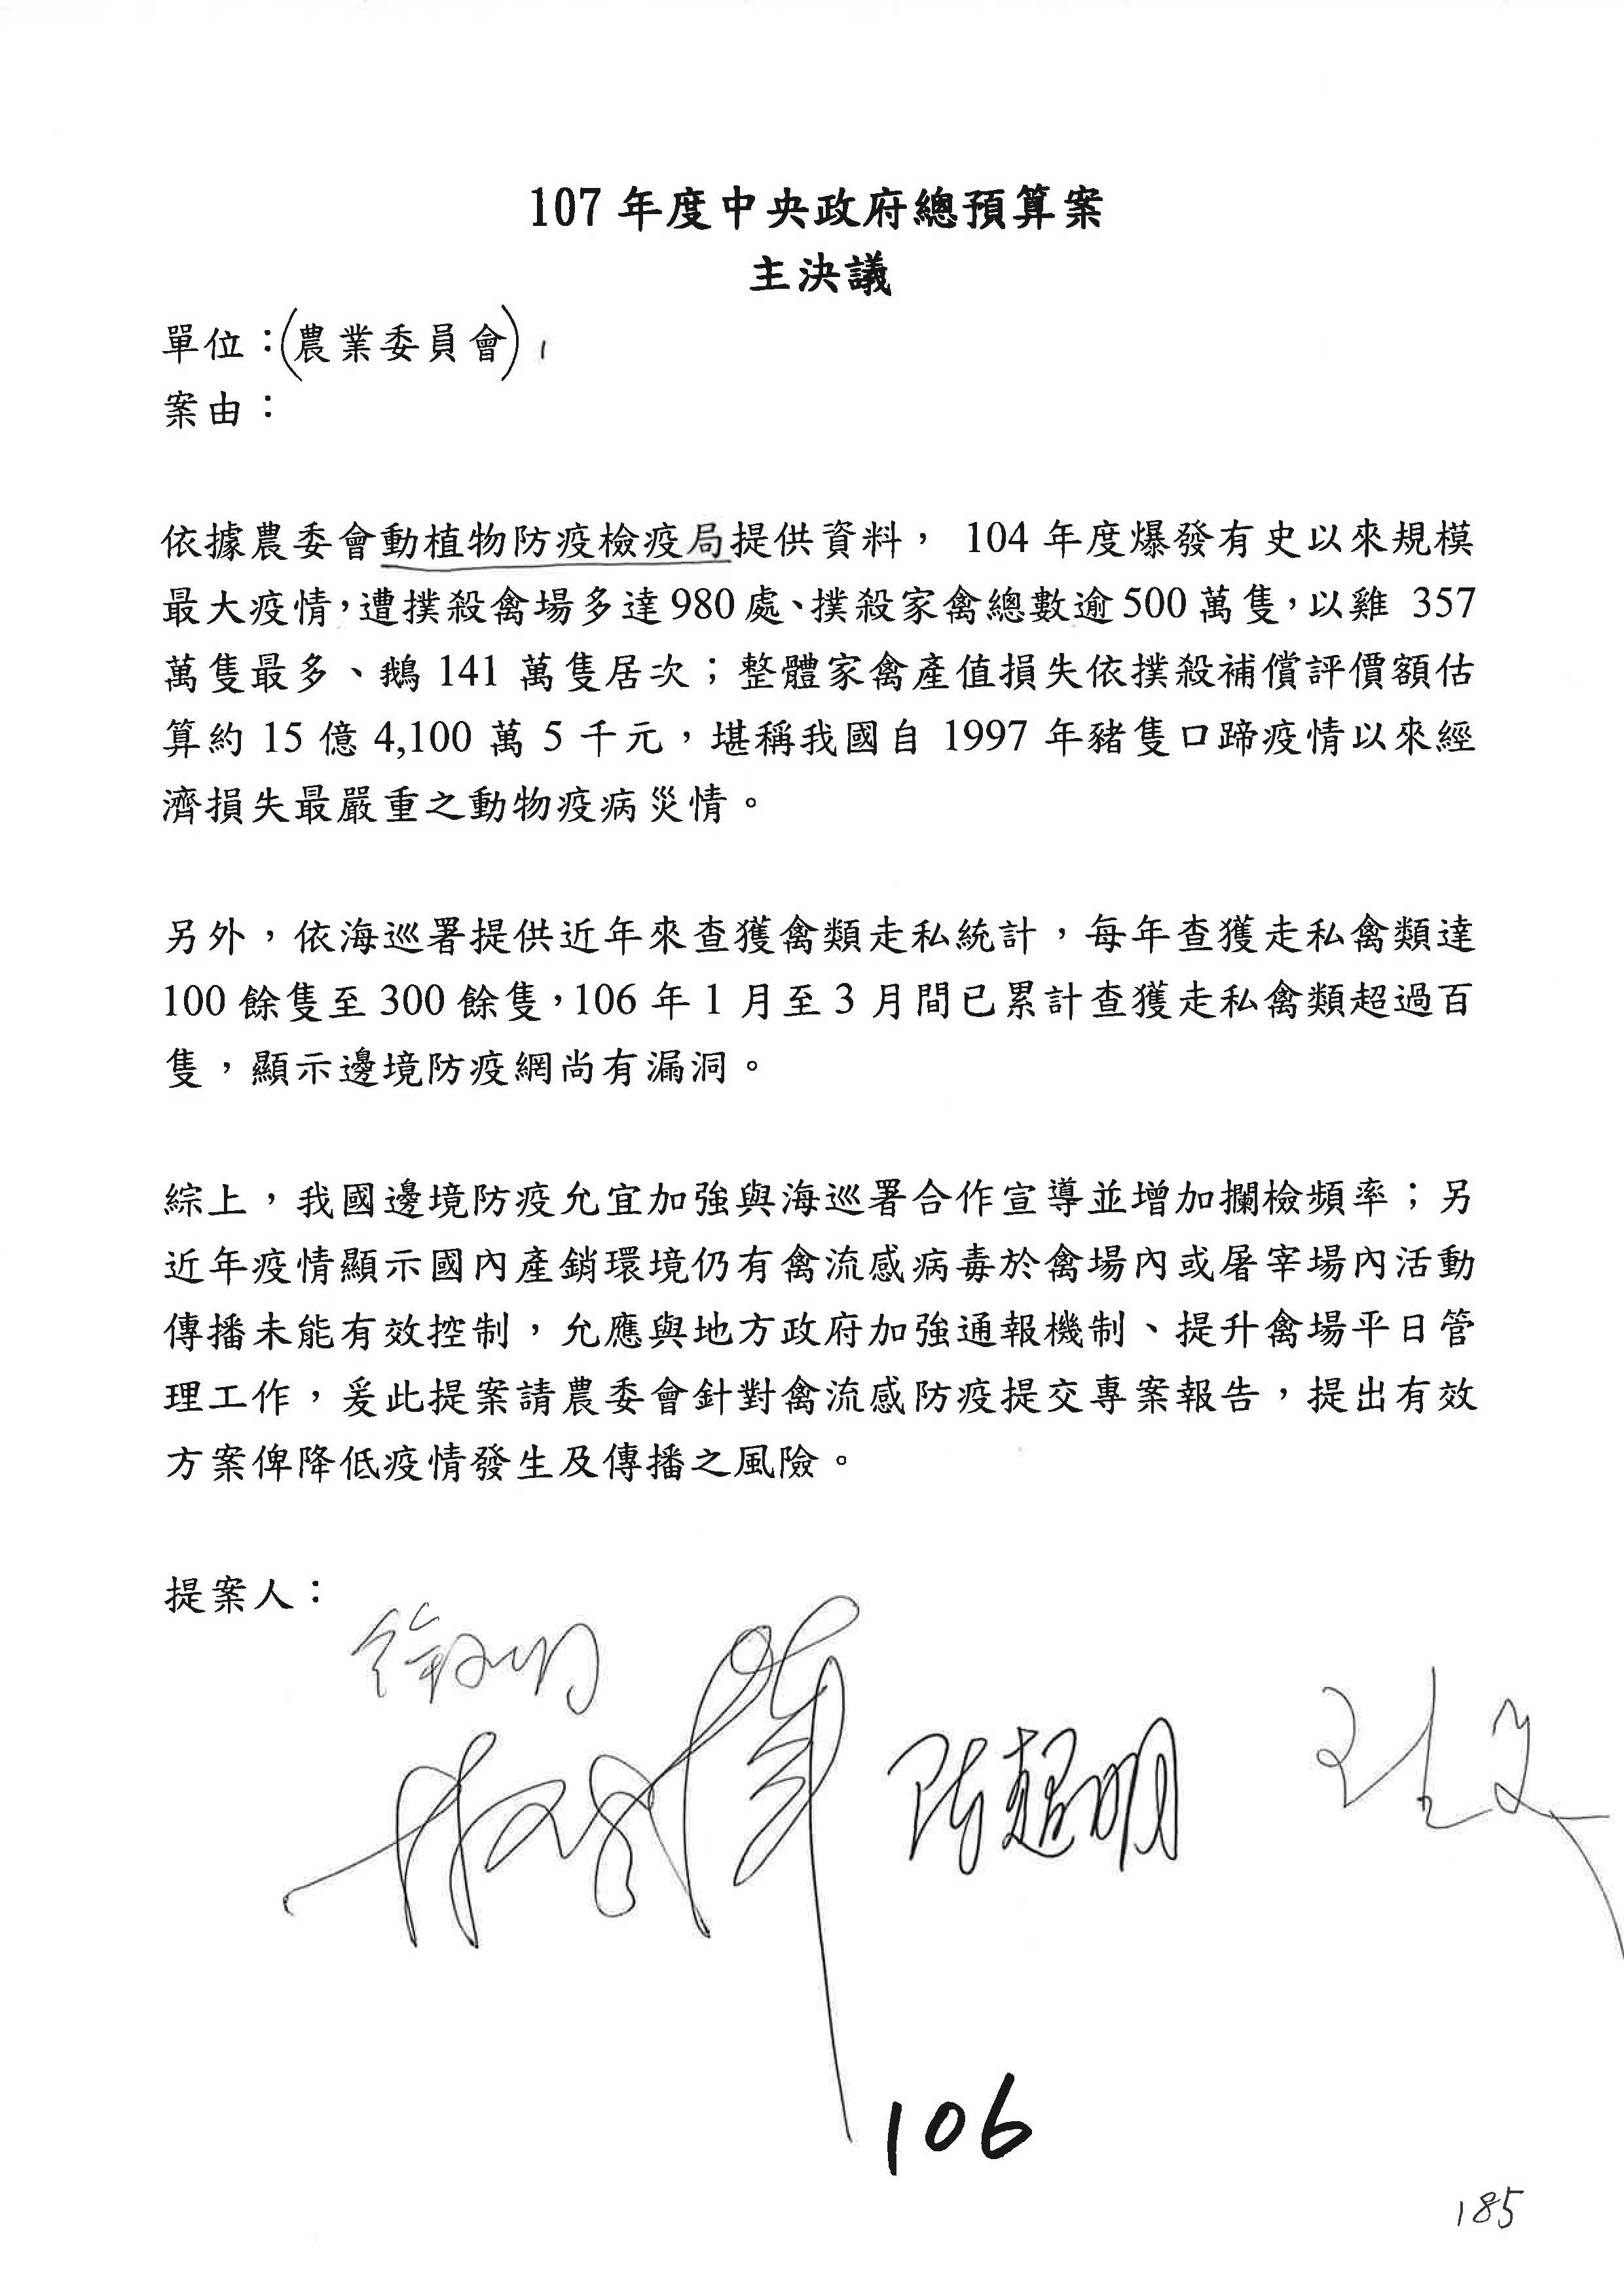 107 年度中央政府總預算案
主決議
單位：(農業委員會)
案由：
依據農委會動植物防疫檢疫局提供資料， 104 年度爆發有史以來規模
最大疫情，遭撲殺禽場多達 980 處、撲殺家禽總數逾 500 萬隻，以雞 357
萬隻最多、鵝 141 萬隻居次；整體家禽產值損失依撲殺補償評價額估
算約 15 億 4,100 萬 5 千元，堪稱我國自 1997 年豬隻口蹄疫情以來經
濟損失最嚴重之動物疫病災情。
另外，依海巡署提供近年來查獲禽類走私統計，每年查獲走私禽類達
100 餘隻至 300 餘隻，106 年 1 月至 3 月間已累計查獲走私禽類超過百
隻，顯示邊境防疫網尚有漏洞。
綜上，我國邊境防疫允宜加強與海巡署合作宣導並增加攔檢頻率；另
近年疫情顯示國內產銷環境仍有禽流感病毒於禽場內或屠宰場內活動
傳播未能有效控制，允應與地方政府加強通報機制、提升禽場平日管
理工作，爰此提案請農委會針對禽流感防疫提交專案報告，提出有效
方案俾降低疫情發生及傳播之風險。
提案人：
陳超明
106
185